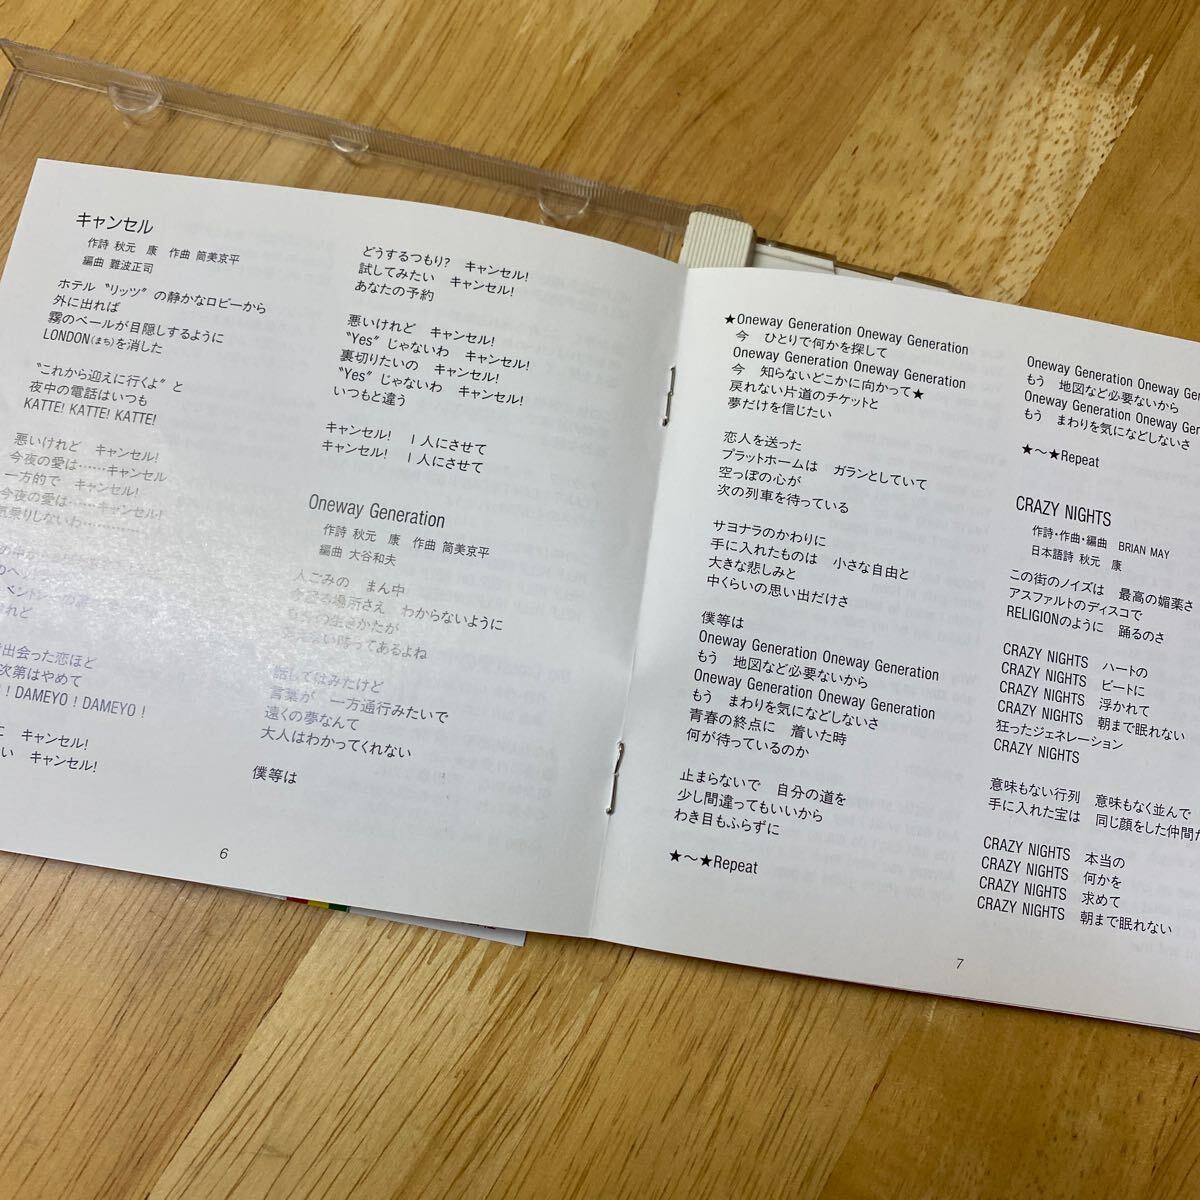 キャンセル
作詩 秋元 康 作曲 筒美京平
編曲 難波正司
ホテル〝リッツ〞の静かなロビーから
外に出れば
霧のベールが目隠しするように
LONDON(まち)を消した
〝これから迎えに行くよ〞と
夜中の電話はいつも
KATTE! KATTE! KATTE!
悪いけれど キャンセル!
今夜の愛は……キャンセル
一方的で キャンセル!
今夜の愛は……キャンセル!
気乗りしないわ…………
けれど
出会った恋ほど
次第はやめて
! DAMEYO! DAMEYO!
に キャンセル!
い キャンセル!
どうするつもり? キャンセル!
試してみたい キャンセル!
あなたの予約
悪いけれど キャンセル!
〝Yes〞じゃないわ キャンセル!
裏切りたいの キャンセル!
〝Yes〞じゃないわ キャンセル!
いつもと違う
キャンセル! 1人にさせて
キャンセル! 1人にさせて
Oneway Generation
作詩 秋元 康 作曲 筒美京平
編曲 大谷和夫
人ごみの まん中
わからないように
生きかたが
あるよね
話してはみたけど
言葉が 一方通行みたいで
遠くの夢なんて
大人はわかってくれない
僕等は
6
★Oneway Generation Oneway Generation
今 ひとりで何かを探して
Oneway Generation Oneway Generation
今 知らないどこかに向かって★
戻れない片道のチケットと
夢だけを信じたい
恋人を送った
プラットホームは ガランとしていて
空っぽの心が
次の列車を待っている
サヨナラのかわりに
手に入れたものは 小さな自由と
大きな悲しみと
中くらいの思い出だけさ
僕等は
Oneway Generation Oneway Generation
もう 地図など必要ないから
Oneway Generation Oneway Generation
もう まわりを気になどしないさ
青春の終点に 着いた時
何が待っているのか
止まらないで 自分の道を
少し間違ってもいいから
わき目もふらずに
★〜★Repeat
Oneway Generation Oneway
もう 地図など必要ないから
Oneway Generation Oneway
もう まわりを気になどしないさ
★〜★Repeat
CRAZY NIGHTS
作詩・作曲・編曲 BRIAN MAY
日本語詩 秋元 康
この街のノイズは 最高の媚薬さ
アスファルトのディスコで
RELIGIONのように 踊るのさ
CRAZY NIGHTS ハートの
CRAZY NIGHTS ビートに
CRAZY NIGHTS 浮かれて
CRAZY NIGHTS 朝まで眠れない
狂ったジェネレーション
CRAZY NIGHTS
意味もない行列 意味もなく並んで
手に入れた宝は 同じ顔をした仲間
CRAZY NIGHTS 本当の
CRAZY NIGHTS 何かを
CRAZY NIGHTS 求めて
CRAZY NIGHTS 朝まで眠れない
7